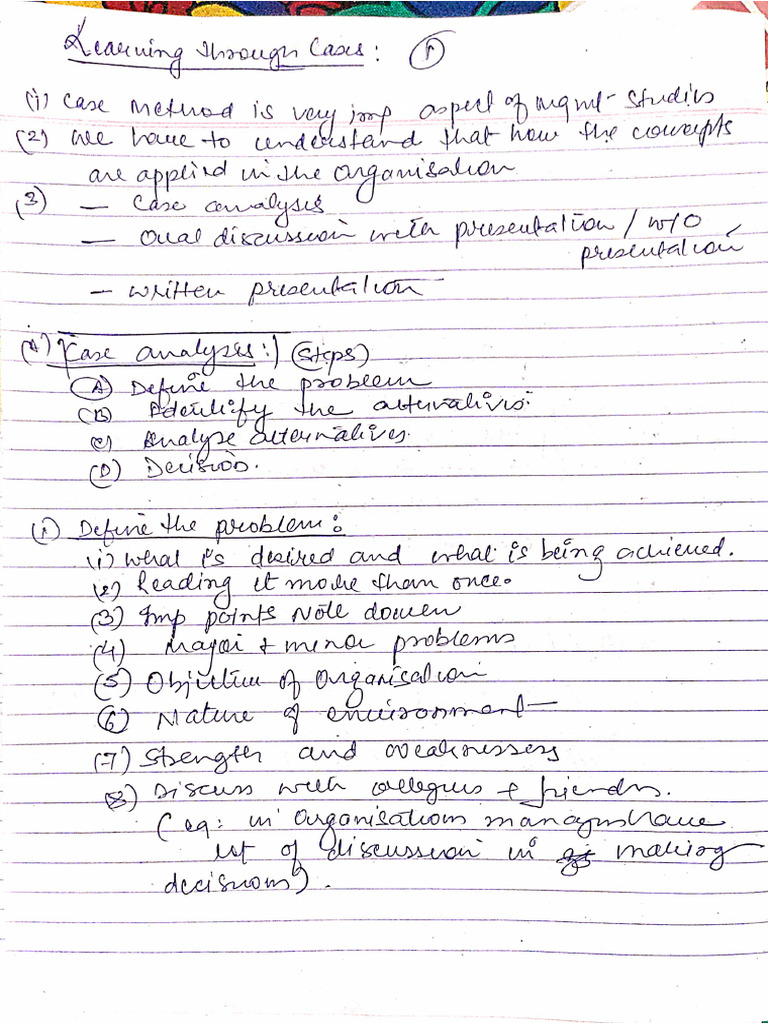 Learning through Cases: (1)
(1) Case Method is very imp aspect of mgmt studies
(2) We have to understand that how the concepts
are applied in the organisation
(3) — Case analysis
— Oral discussion with presentation / w/o
presentation
— written presentation
(4) Case analyses:) (Steps)
(A) Define the problem
(B) Identify the alternatives.
(C) Analyse alternatives.
(D) Decision.
(1) Define the problem:
(1) What is desired and what is being achieved.
(2) Reading it more than once.
(3) Imp points Note down
(4) Major + minor problems
(5) Objective of organisation
(6) Nature of environment
(7) Strength and weaknessess
(8) Discuss with collegues + friends.
(eg: in organisations managers have
lot of discussion in making
decisions).